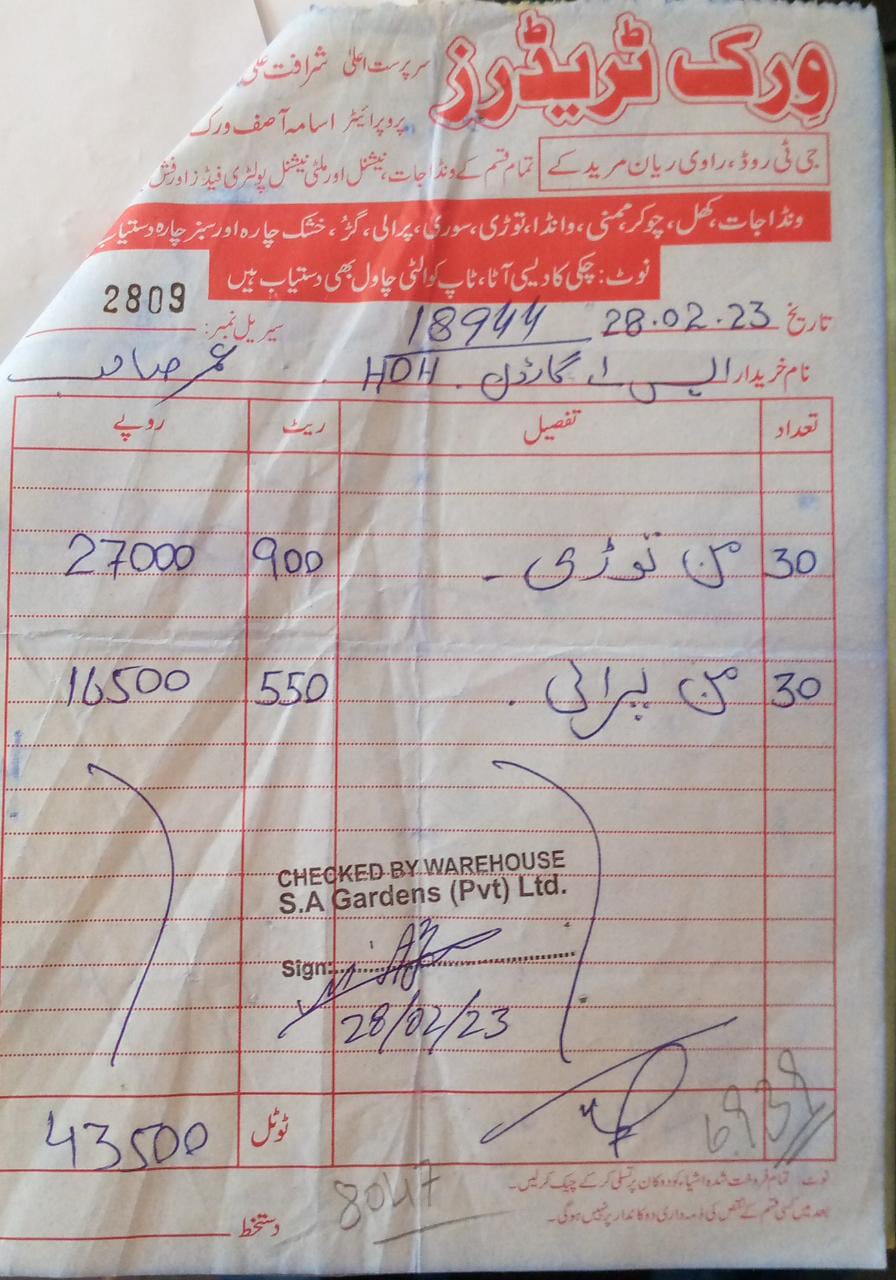 ورک ٹریڈرز
سرپرست اعلیٰ شرافت علی
پروپرائیٹر اسامہ آصف ورک
جی ٹی روڈ، راوی ریان مریدکے
تمام قسم کے ونڈاجات، نیشنل اور ملٹی نیشنل پولٹری فیڈز اور فش
ونڈاجات، کھل، چوکر، ممنی، وانڈا، توڑی، سوری، پرالی، گڑ، خشک چارہ اور سبز چارہ دستیاب
نوٹ: چکی کا دیسی آٹا، ٹاپ کوالٹی چاول بھی دستیاب ہیں
تاریخ 28.02.23 18944 سیریل نمبر: 2809
نام خریدار ایس اے گارڈن . HDH عمر صاحب
تعداد تفصیل ریٹ روپے
30 من توڑی - 900 27000
30 من پرالی . 550 16500
CHECKED BY WAREHOUSE
S.A Gardens (Pvt) Ltd.
Sign:
28/02/23
ٹوٹل 43500
6939
8047
نوٹ: تمام فروخت شدہ اشیاء کو دوکان پر تسلی کر کے چیک کر لیں۔
بعد میں کسی قسم کے نقص کی ذمہ داری دوکاندار پر نہیں ہوگی۔
دستخط